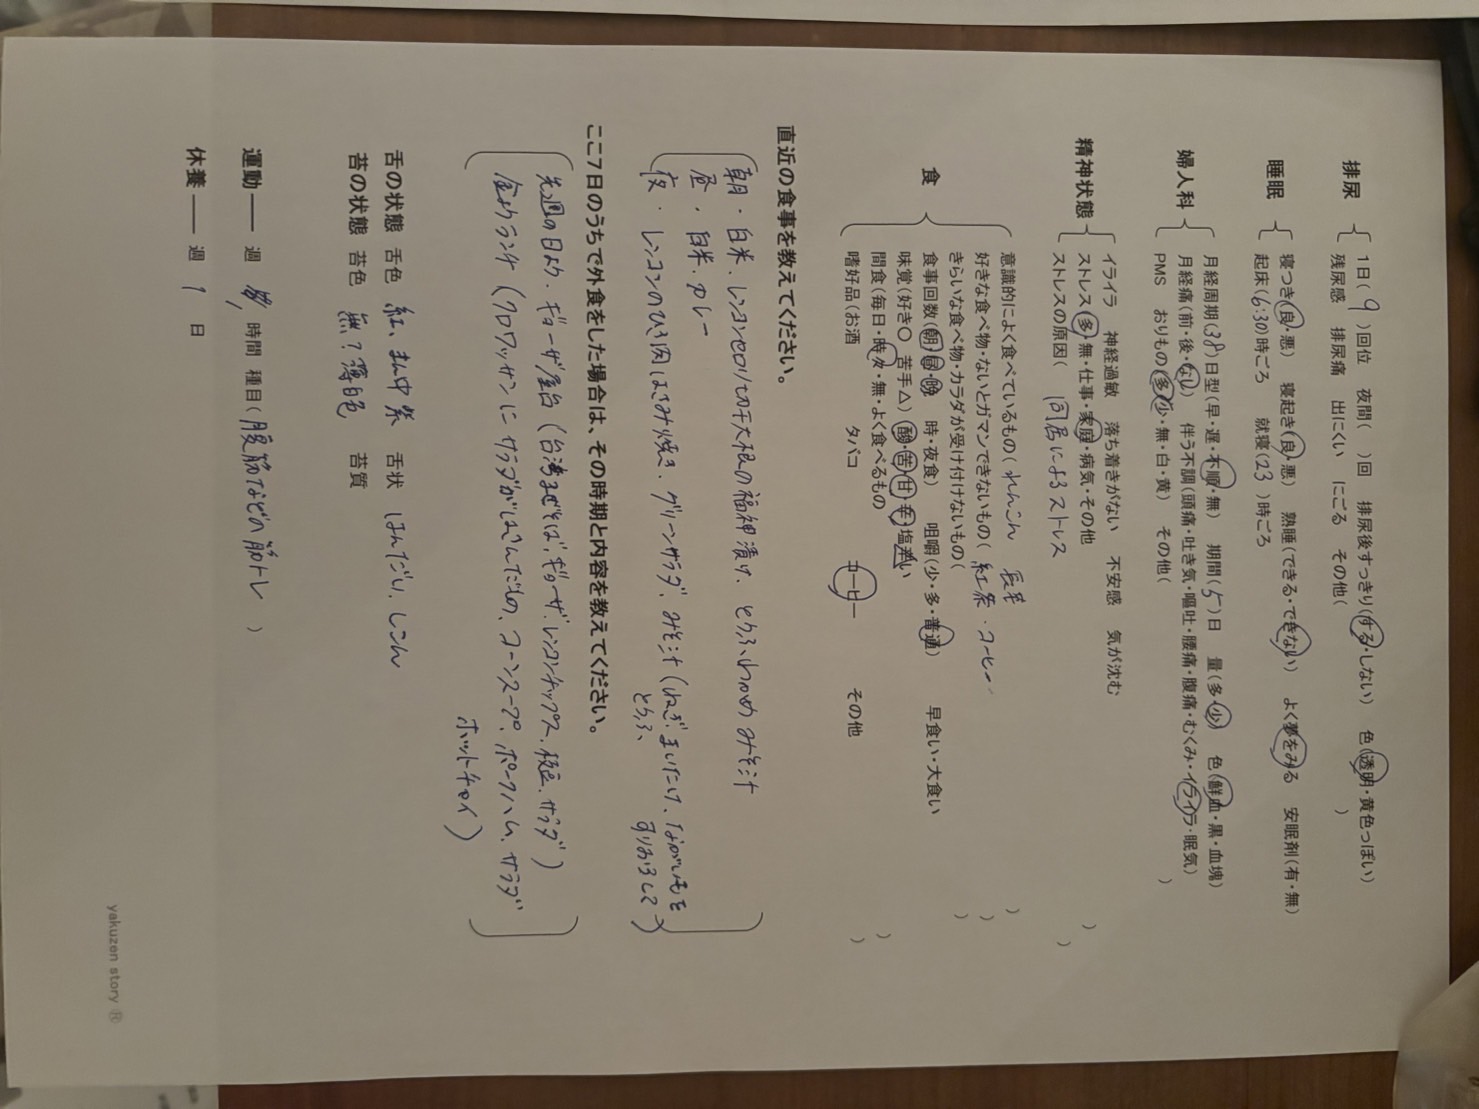 排尿 1日(9)回位 夜間( )回 排尿後すっきり(する・しない) 色(透明・黄色っぽい)
残尿感 排尿痛 出にくい にごる その他( )
睡眠 寝つき(良・悪) 寝起き(良・悪) 熟睡(できる・できない) よく夢をみる 安眠剤(有・無)
起床(6:30)時ごろ 就寝(23)時ごろ
婦人科 月経周期(38)日型(早・遅・不順・無) 期間(5)日 量(多・少) 色(鮮血・黒・血塊)
月経痛(前・後・なし) 伴う不調(頭痛・吐き気・嘔吐・腰痛・腹痛・むくみ・イライラ・眠気)
PMS おりもの(多・少・無・白・黄) その他( )
精神状態 イライラ 神経過敏 落ち着きがない 不安感 気が沈む
ストレス(多・無・仕事・家庭・病気・その他 )
ストレスの原因( 同居によるストレス )
食 意識的によく食べているもの( れんこん 長芋 )
好きな食べ物・ないとガマンできないもの( 紅茶・コーヒー )
きらいな食べ物・カラダが受け付けないもの( )
食事回数(朝・昼・晩 時・夜食) 咀嚼(少・多・普通) 早食い・大食い
味覚(好き○ 苦手△)(酸・苦・甘・辛・塩辛い
間食(毎日・時々・無・よく食べるもの )
嗜好品(お酒 タバコ コーヒー その他 )
直近の食事を教えてください。
朝・白米、レンコンセロリ切干大根の福神漬け、とうふ、わかめみそ汁
昼・白米・カレー
夜・レンコンのひき肉はさみ焼き、グリーンサラダ、みそ汁(ねぎ、まいたけ、ながいもを
とうふ、 すりおろして)
ここ7日のうちで外食をした場合は、その時期と内容を教えてください。
先週の日よう・ギョーザ屋台(台湾まぜそば、ギョーザ、レンコンチップス、枝豆、サラダ)
金ようランチ(クロワッサンにサラダがはさんだもの、コーンスープ、ポークハム、サラダ
ホットチャイ)
舌の状態 舌色 紅、まん中紫 舌状 はんだい、しこん
苔の状態 苔色 無?薄白色 苔質
運動 —— 週 時間 種目( 腹筋などの筋トレ )
休養 —— 週 1 日
yakuzen story ®